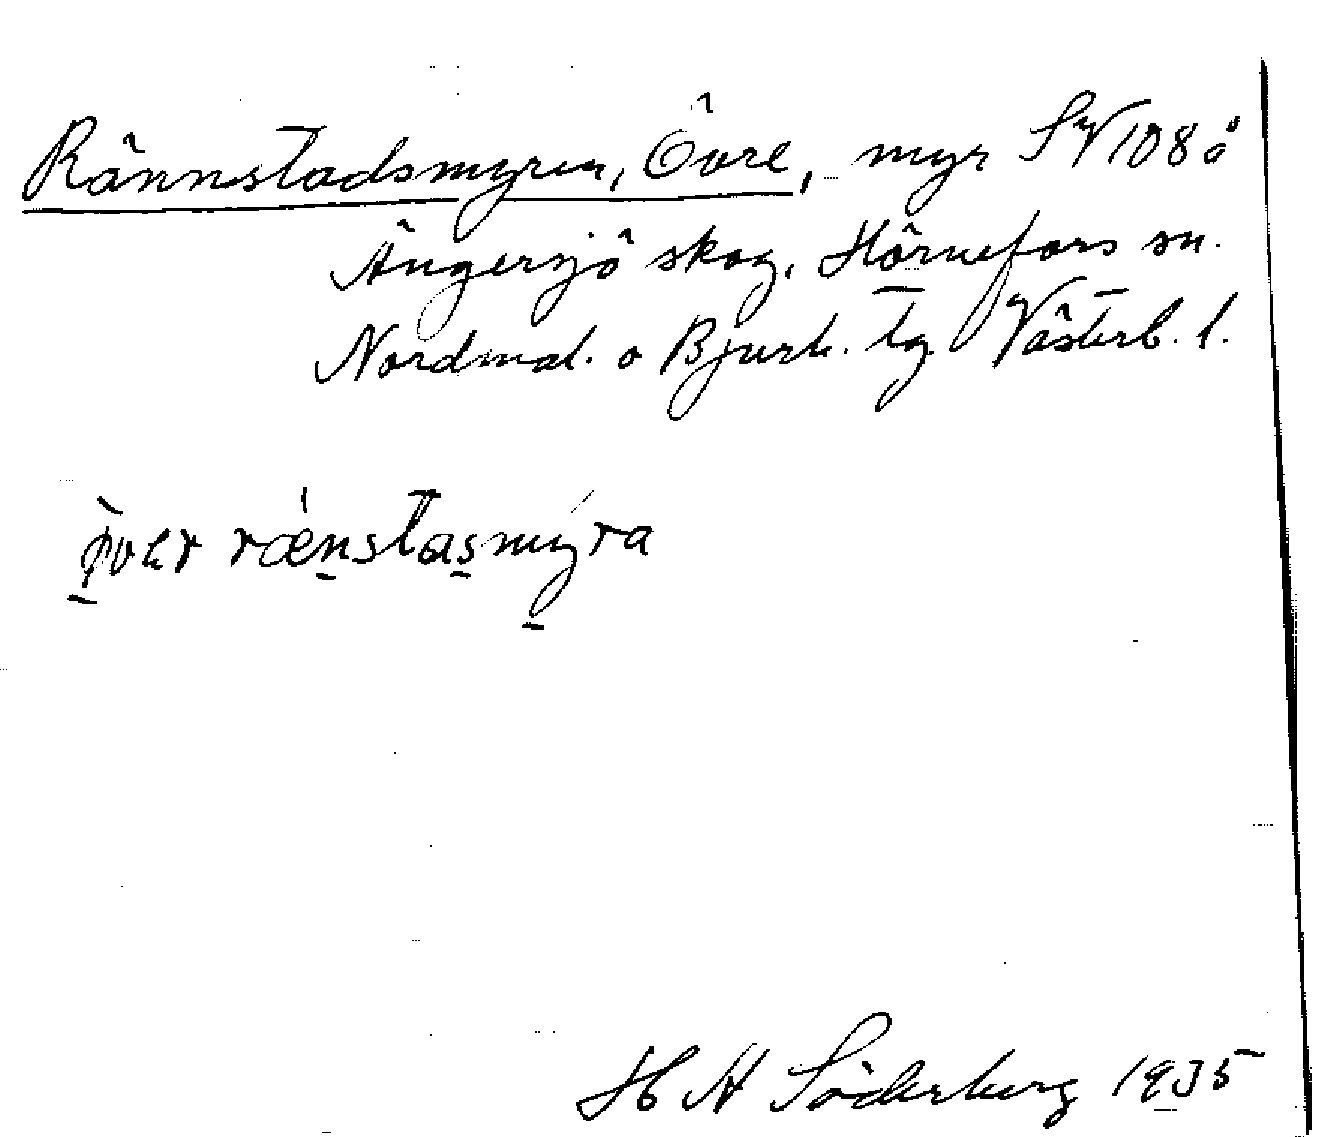 Rännstadsmyren, Övre, myr SV 108 ö
Ängersjö skog, Hörnefors sn.
Nordmal. o Bjurh. tg Västerb. l.
rænstasmyra
H A Söderberg 1935